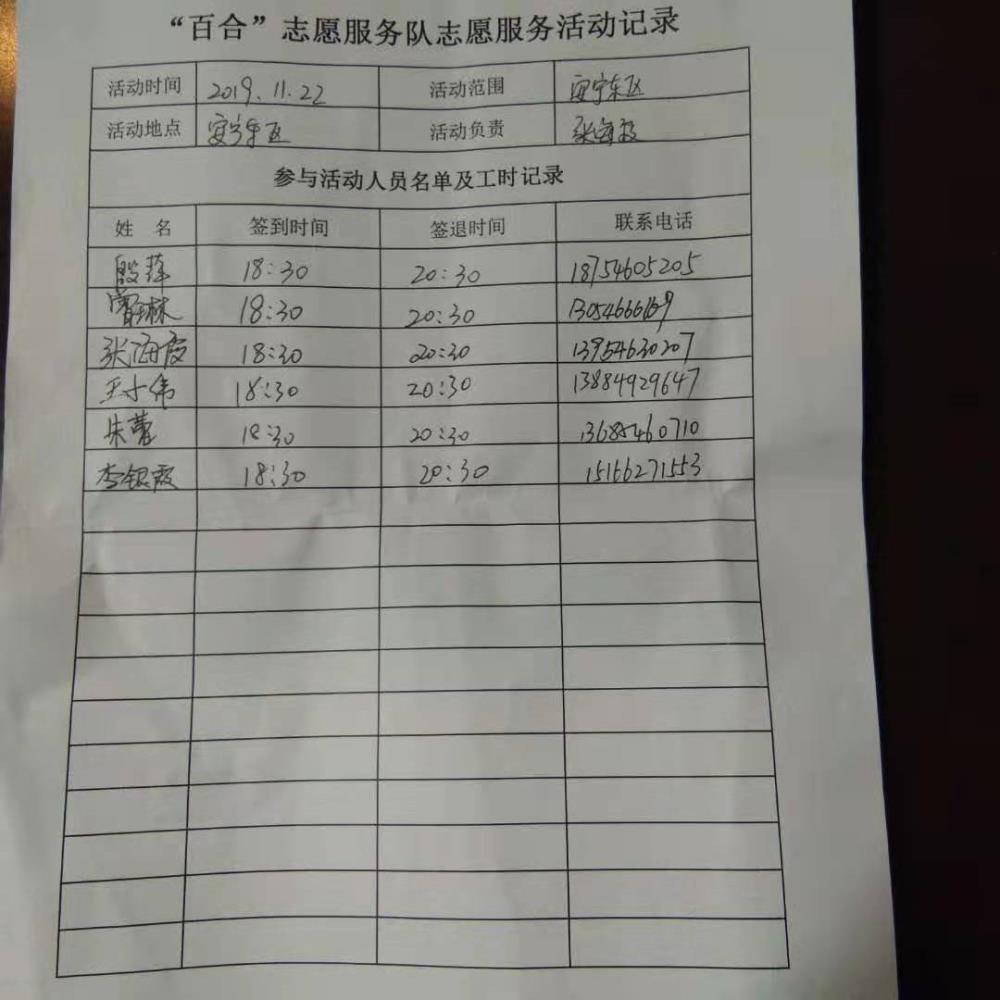 “百合”志愿服务队志愿服务活动记录
活动时间 2019.11.22 活动范围 安宁东区
活动地点 安宁东区 活动负责 张海霞
参与活动人员名单及工时记录
姓 名 签到时间 签退时间 联系电话
殷萍 18:30 20:30 18754605205
18:30 20:30
张海霞 18:30 20:30 13954630207
王小伟 18:30 20:30 13884929647
朱蕾 18:30 20:30 13685460710
李银霞 18:30 20:30 15166271553